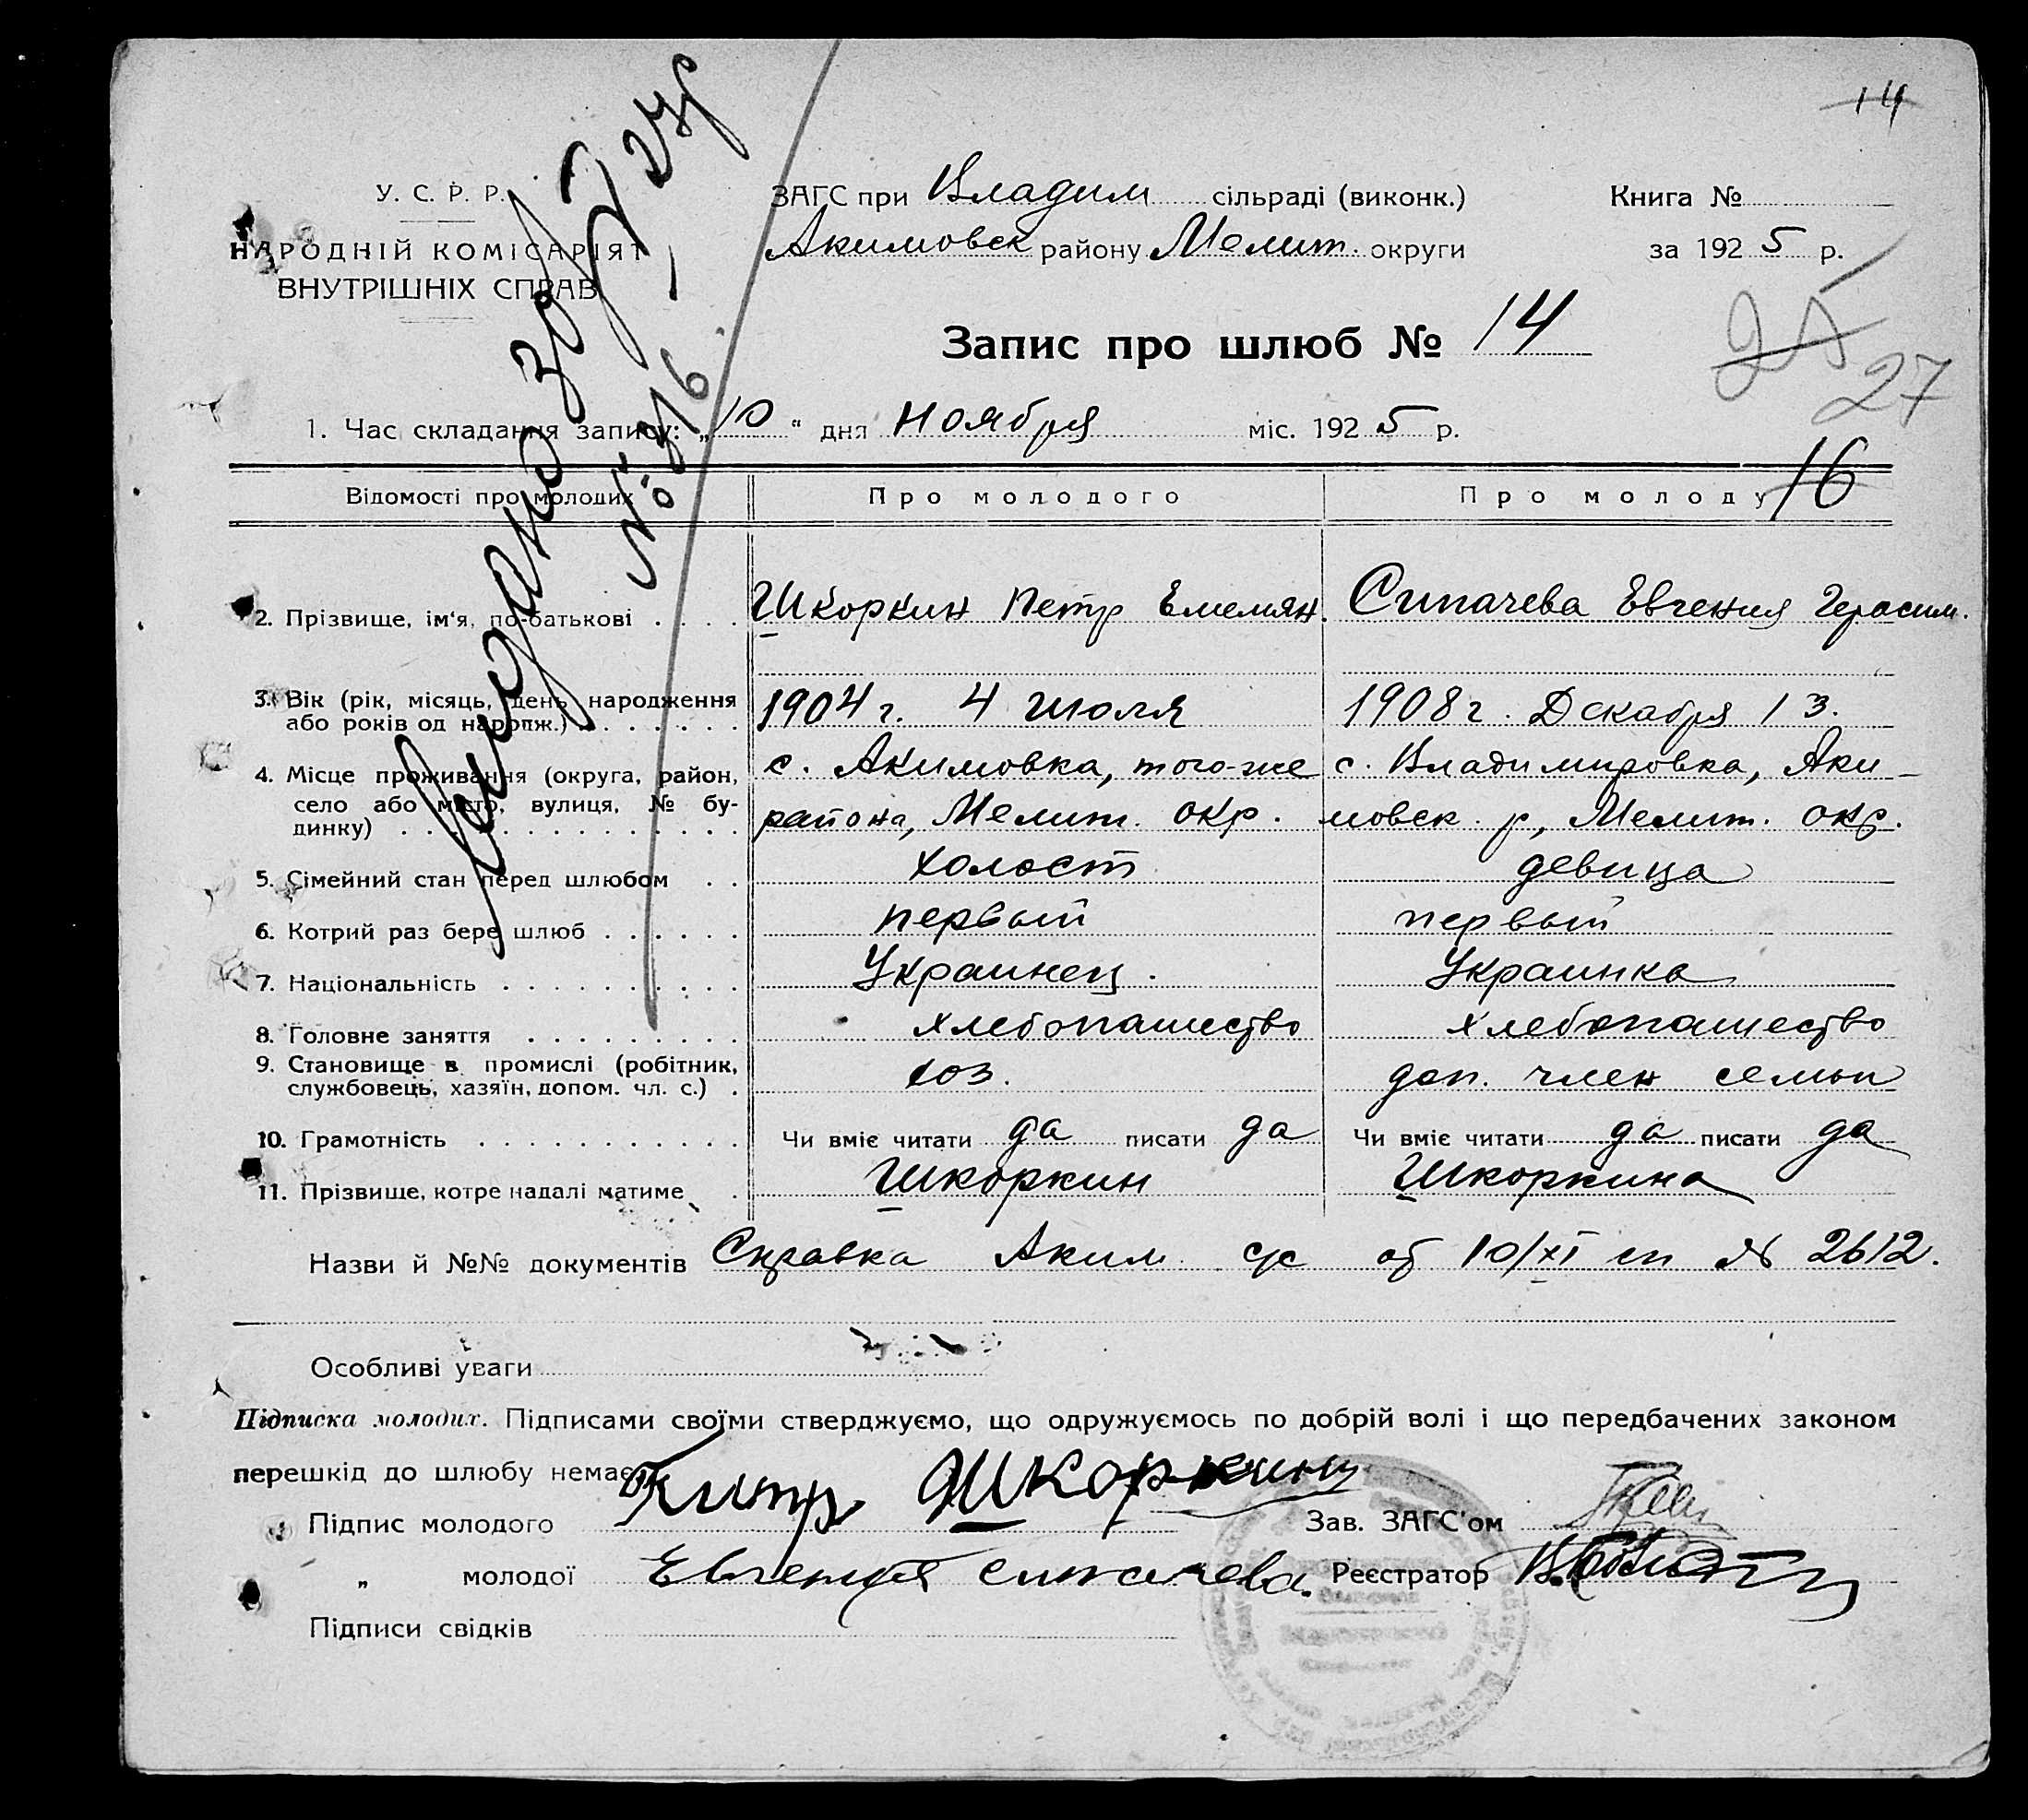 14
У. С. Р. Р.
НАРОДНІЙ КОМІСАРІЯТ
ВНУТРІШНІХ СПРАВ
ЗАГС при Владим сільраді (виконк.)
Акимовск району Мелит. округи
Книга №
за 1925 р.
Запис про шлюб № 14
25
27
1. Час складання запису: „10“ дня Ноября міс. 1925 р.
16
№ 16
Відомості про молодих Про молодого Про молоду
2. Прізвище, ім'я, по-батькові . . . . Шкоркин Петр Емельян. Сипачева Евгения Герасим.
3. Вік (рік, місяць, день народження
або років од народж.) . . . . . . . 1904 г. 4 Июля 1908 г. Декабря 13.
4. Місце проживання (округа, район, с. Акимовка, того-же с. Владимировка, Аки-
село або місто, вулиця, № бу- района, Мелит. окр. мовск. р, Мелит. окр.
динку) . . . . . . . . . . . . . . .
5. Сімейний стан перед шлюбом . . холост девица
6. Котрий раз бере шлюб . . . . . . первый первый
7. Національність . . . . . . . . . . Украинец. Украинка
8. Головне заняття . . . . . . . . . хлебопашество хлебопашество
9. Становище в промислі (робітник,
службовець, хазяїн, допом. чл. с.) . хоз. доп. член семьи
10. Грамотність . . . . . . . . . . . Чи вміє читати да писати да Чи вміє читати да писати да
11. Прізвище, котре надалі матиме . Шкоркин Шкоркина
Назви й №№ документів Справка Аким с/с от 10/XI № 2612.
Особливі уваги
Підписка молодих. Підписами своїми стверджуємо, що одружуємось по добрій волі і що передбачених законом
перешкід до шлюбу немає.
Підпис молодого Шкоркин Зав. ЗАГС'ом
„ молодої Евгения Сипачева. Реєстратор
Підписи свідків